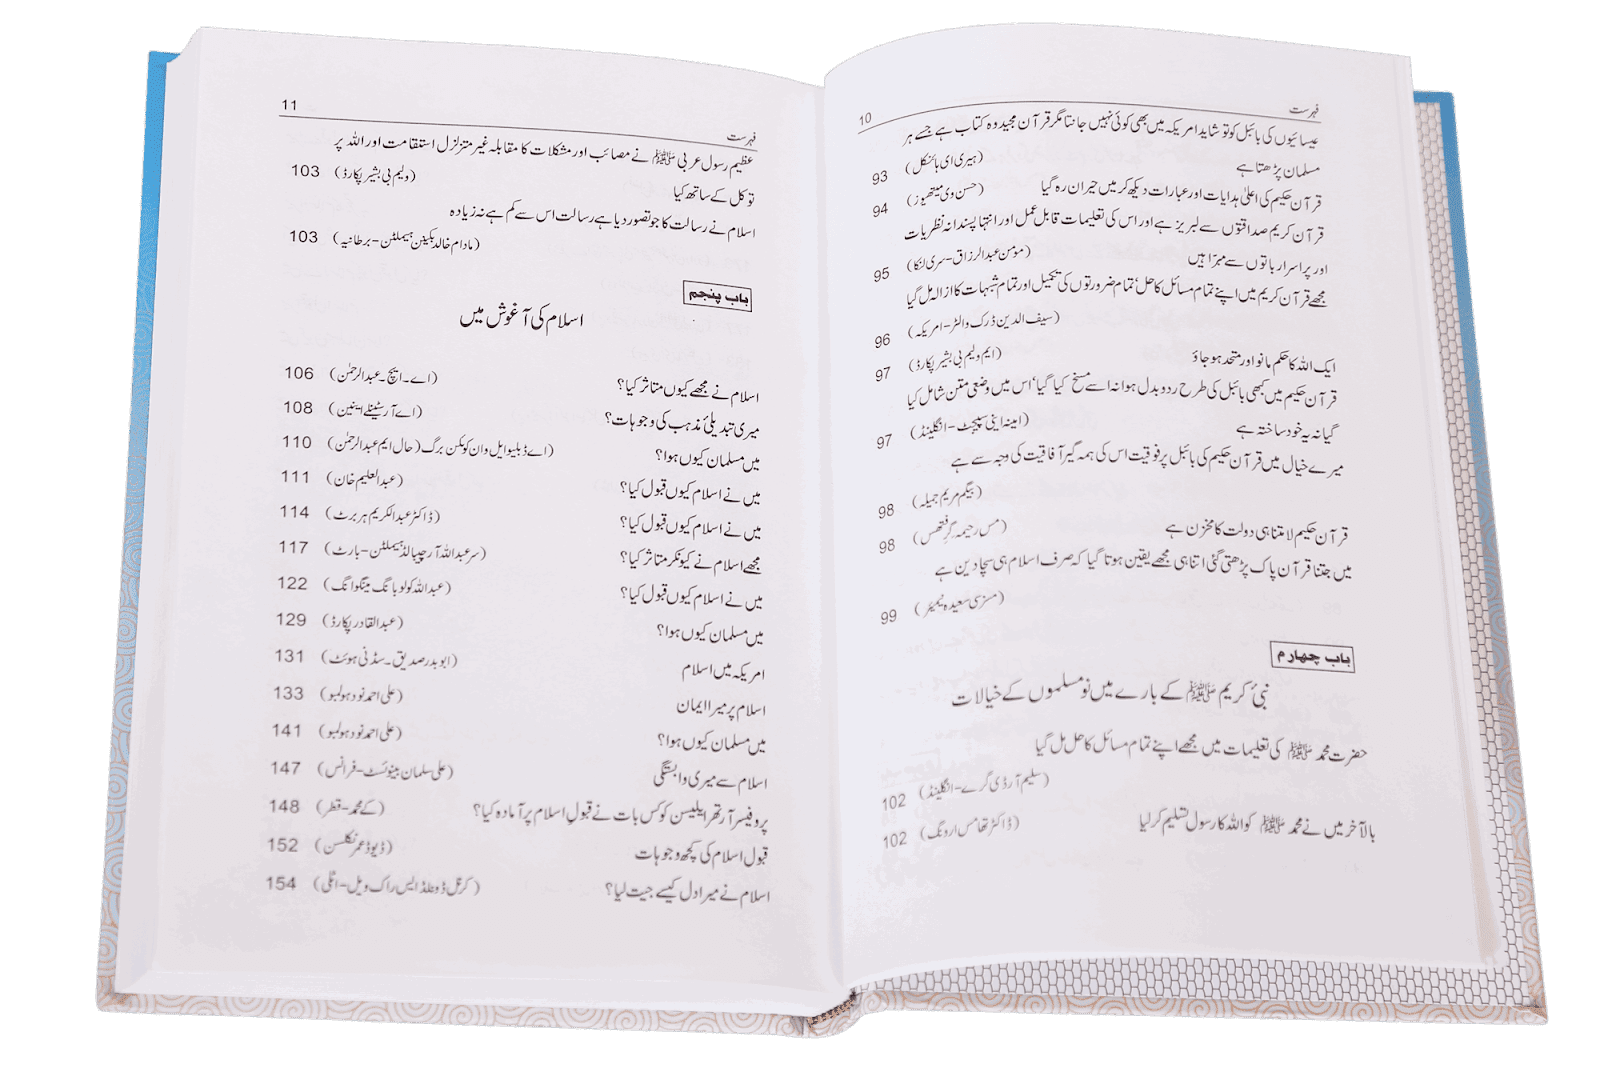 فہرست
10
عیسائیوں کی بائبل کو تو شاید امریکہ میں بھی کوئی نہیں جانتا مگر قرآن مجید وہ کتاب ہے جسے ہر
مسلمان پڑھتا ہے (ہیری ای ہائنکل) 93
قرآن حکیم کی اعلیٰ ہدایات اور عبارات دیکھ کر میں حیران رہ گیا (حسن وی میتھیوز) 94
قرآن کریم صداقتوں سے لبریز ہے اور اس کی تعلیمات قابل عمل اور انتہا پسندانہ نظریات
اور پراسرار باتوں سے مبرّا ہیں (مومن عبدالرزاق-سری لنکا) 95
مجھے قرآن کریم میں اپنے تمام مسائل کا حل، تمام ضرورتوں کی تکمیل اور تمام شبہات کا ازالہ مل گیا
(سیف الدین ڈرک والٹر-امریکہ) 96
ایک اللہ کا حکم مانو اور متحد ہو جاؤ (ایم ولیم بی بشیر پکارڈ) 97
قرآن حکیم میں کبھی بائبل کی طرح ردوبدل ہوا نہ اسے مسخ کیا گیا، اس میں وضعی متن شامل کیا
گیا نہ یہ خود ساختہ ہے (امینہ اینی سپیجٹ-انگلینڈ) 97
میرے خیال میں قرآن حکیم کی بائبل پر فوقیت اس کی ہمہ گیر آفاقیت کی وجہ سے ہے
(بیگم مریم جمیلہ) 98
قرآن حکیم لامتناہی دولت کا مخزن ہے (مس رحیمہ گرفتھس) 98
میں جتنا قرآن پاک پڑھتی گئی اتنا ہی مجھے یقین ہوتا گیا کہ صرف اسلام ہی سچا دین ہے
(مسز سی سعیدہ نیمیئر) 99
باب چهارم
نبیٔ کریم ﷺ کے بارے میں نومسلموں کے خیالات
حضرت محمد ﷺ کی تعلیمات میں مجھے اپنے تمام مسائل کا حل مل گیا
(سلیم آر ڈی گرے-انگلینڈ) 102
بالآخر میں نے محمد ﷺ کو اللہ کا رسول تسلیم کر لیا (ڈاکٹر تھامس ارونگ) 102
فہرست
11
عظیم رسول عربی ﷺ نے مصائب اور مشکلات کا مقابلہ غیر متزلزل استقامت اور اللہ پر
توکل کے ساتھ کیا (ولیم بی بشیر پکارڈ) 103
اسلام نے رسالت کا جو تصور دیا ہے رسالت اس سے کم ہے نہ زیادہ
(مادام خالد بکینن ہیملٹن-برطانیہ) 103
باب پنجم
اسلام کی آغوش میں
اسلام نے مجھے کیوں متاثر کیا؟ (اے۔ ایچ۔ عبدالرحمٰن) 106
میری تبدیلیٔ مذہب کی وجوہات؟ (اے آر سٹینلے اینین) 108
میں مسلمان کیوں ہوا؟ (اے ڈبلیو ایل وان کوئکن برگ (حال ایم عبدالرحمٰن) 110
میں نے اسلام کیوں قبول کیا؟ (عبدالعلیم خان) 111
میں نے اسلام کیوں قبول کیا؟ (ڈاکٹر عبدالکریم ہربرٹ) 114
مجھے اسلام نے کیونکر متاثر کیا؟ (سر عبداللہ آرچیبالڈ ہیملٹن-بارٹ) 117
میں نے اسلام کیوں قبول کیا؟ (عبداللہ کولوبانگ مینگوانگ) 122
میں مسلمان کیوں ہوا؟ (عبدالقادر پکارڈ) 129
امریکہ میں اسلام (ابوبدر صدیق۔ سڈنی ہوئٹ) 131
اسلام پر میرا ایمان (علی احمد نود ہولمبو) 133
میں مسلمان کیوں ہوا؟ (علی احمد نود ہولمبو) 141
اسلام سے میری وابستگی (علی سلمان بینوئٹ-فرانس) 147
پروفیسر آرتھر ایلیسن کو کس بات نے قبول اسلام پر آمادہ کیا؟ (کے محمد-قطر) 148
قبول اسلام کی کچھ وجوہات (ڈیوڈ عمر نکلسن) 152
اسلام نے میرا دل کیسے جیت لیا؟ (کرنل ڈونلڈ ایس راک ویل-اٹلی) 154